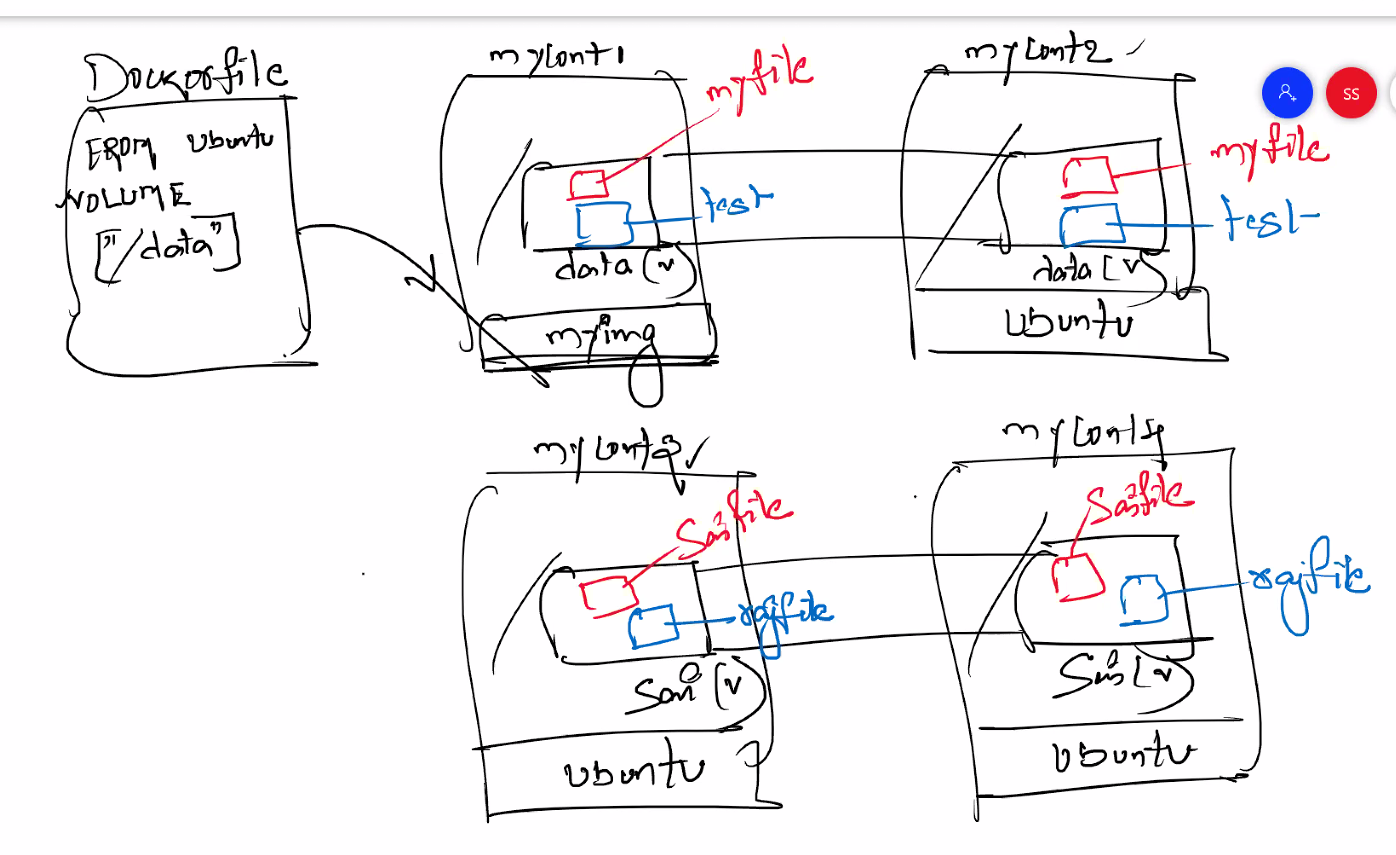 Dockerfile
FROM Ubuntu
VOLUME
["/data"]
mycont1
myfile
test
data (v)
myimg
mycont2
SS
myfile
test
data (v)
Ubuntu
mycont3
Saifile
rajfile
Sai (v)
Ubuntu
mycont4
Saifile
rajfile
Sai (v)
Ubuntu